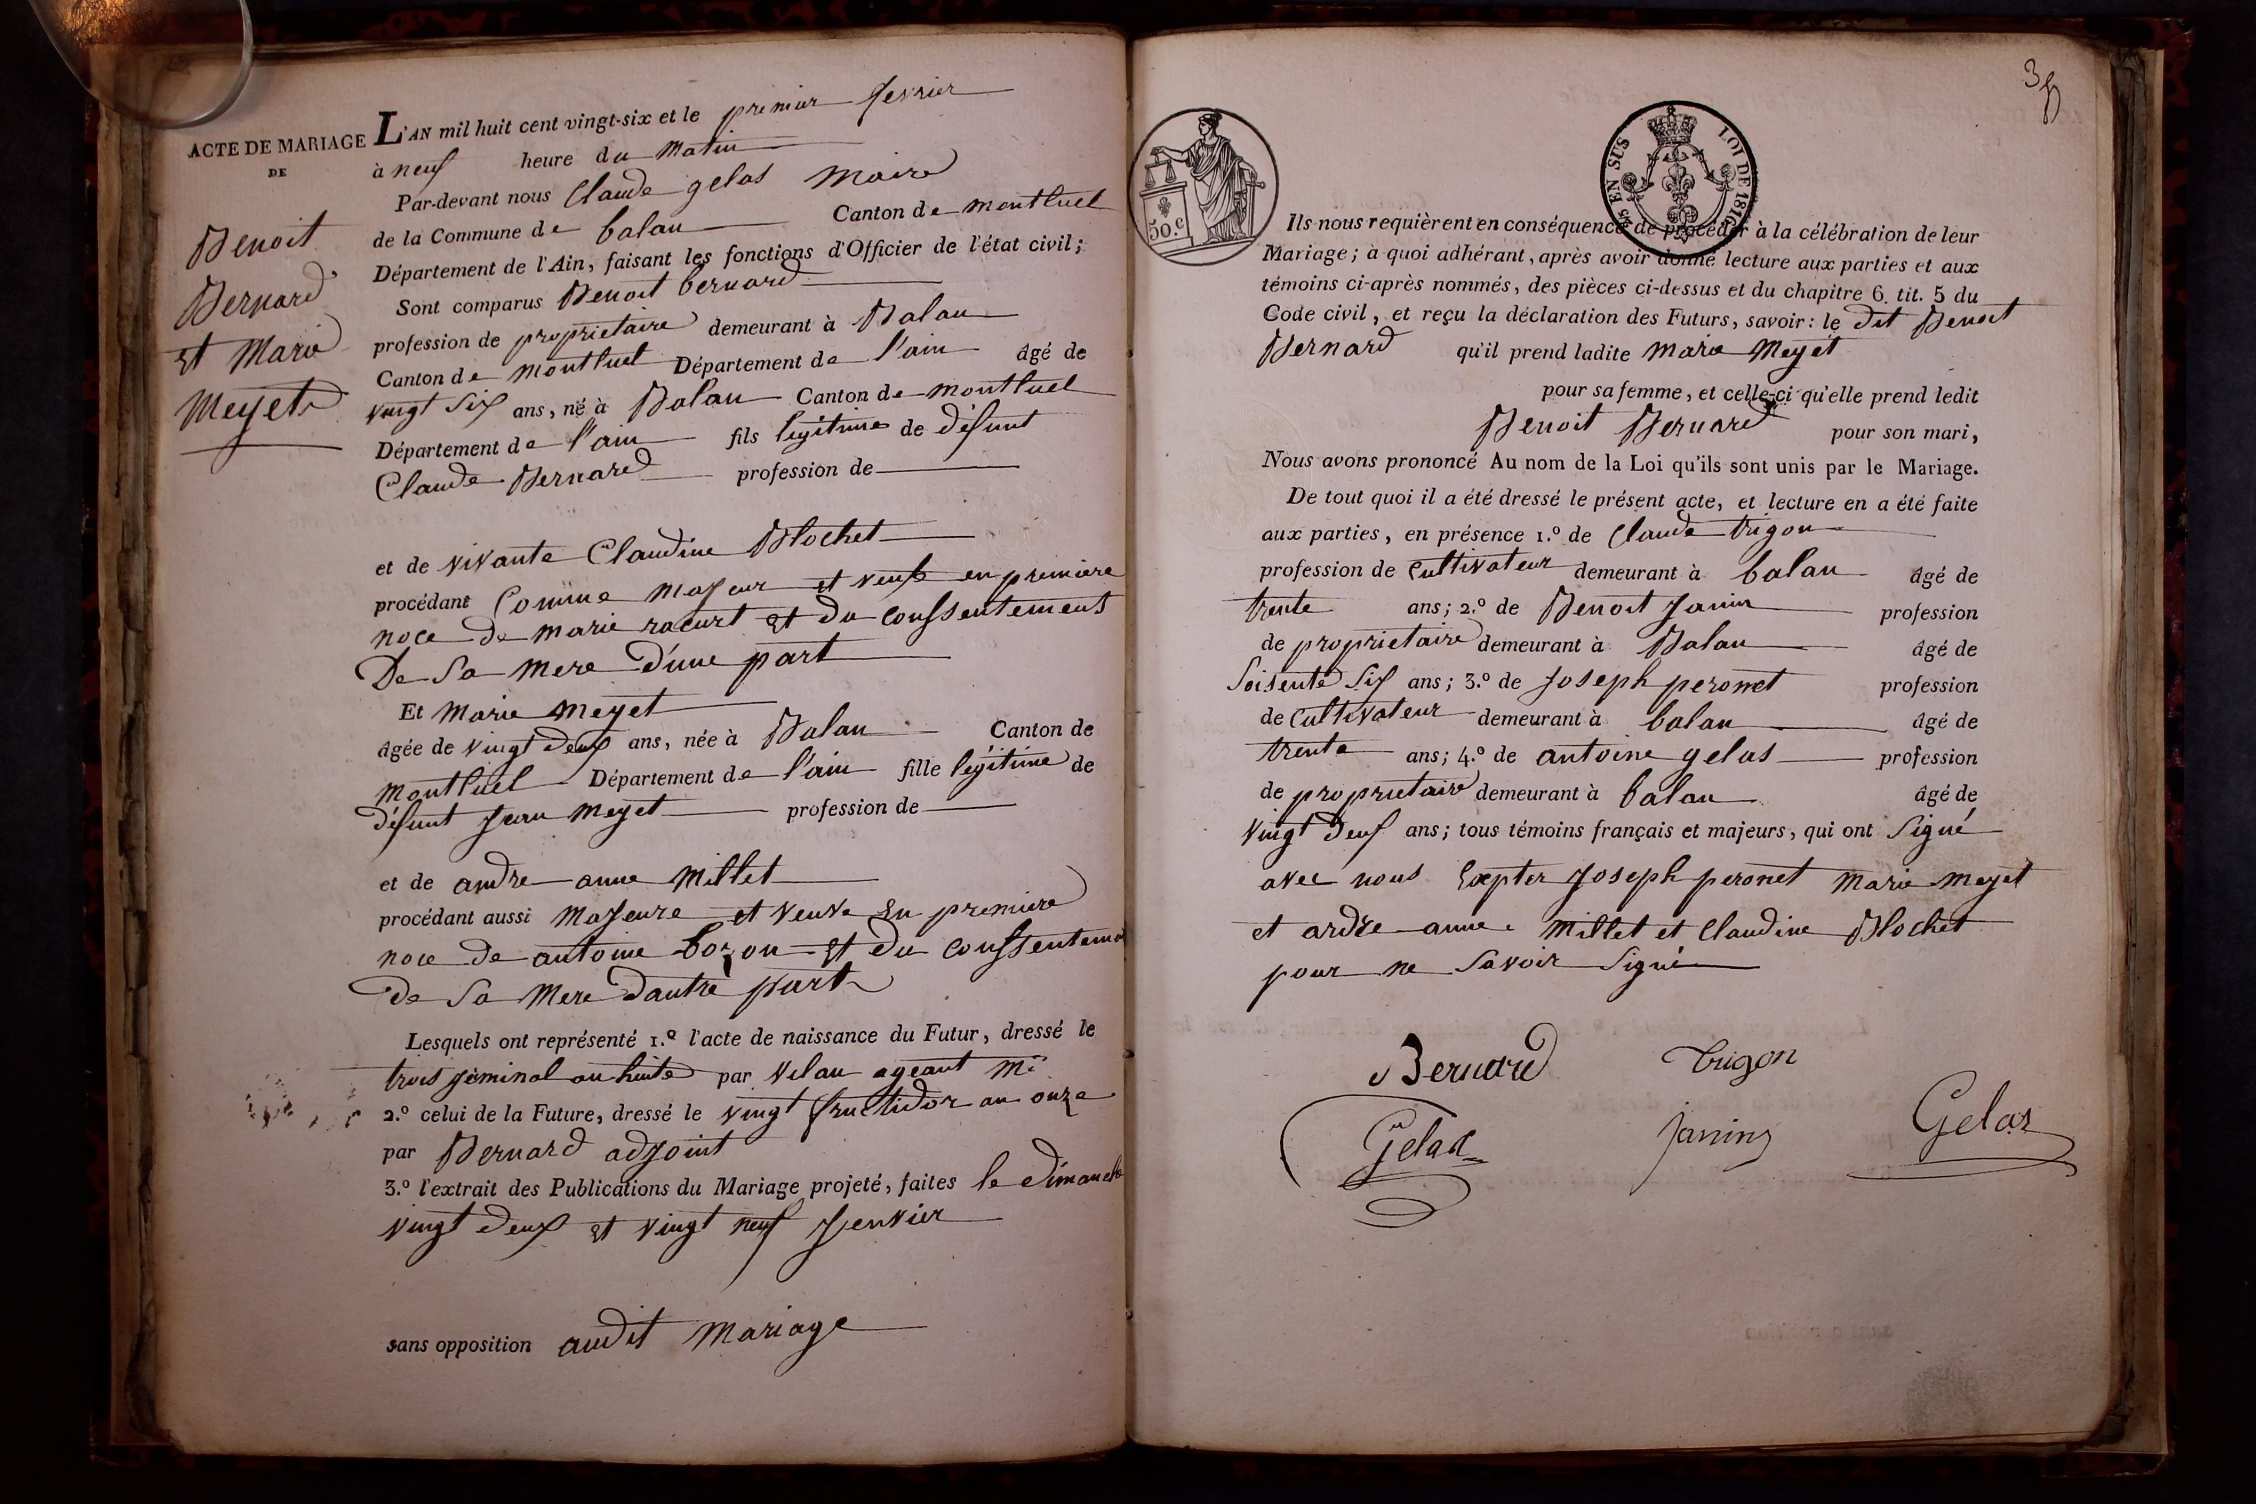 ACTE DE MARIAGE
DE
Benoit
Bernard
et Marie
Meyet
L'AN mil huit cent vingt-six et le premier fevrier
à neuf heure du matin
Par-devant nous Claude gelas Maire
de la Commune de balan Canton de montluel
Département de l'Ain, faisant les fonctions d'Officier de l'état civil;
Sont comparus Benoit bernard
profession de proprietaire demeurant à Balan
Canton de montluel Département de l'ain âgé de
vingt six ans, né à Balan Canton de montluel
Département de l'ain fils légitime de défunt
Claude Bernard profession de
et de vivante Claudine Blochet
procédant Comme majeur et veuf en premiere
noce de marie racurt et du conssentement
De Sa mere d'une part
Et Marie meyet
âgée de vingt deux ans, née à Balan Canton de
montluel Département de l'ain fille légitime de
défunt jean meyet profession de
et de andre anne millet
procédant aussi majeure et veuve en premiere
noce de antoine bozon et du conssenteme
de Sa mere dautre part
Lesquels ont représenté 1.º l'acte de naissance du Futur, dressé le
trois jèminal an huite par vilan ageant m.
2.º celui de la Future, dressé le vingt fructidor an onze
par Bernard adjoint
3.º l'extrait des Publications du Mariage projeté, faites le dimanche
vingt deux et vingt neuf jenvier
sans opposition audit mariage
3
50.c
EN SUS
LOI DE 1816
Ils nous requièrent en conséquence de procéder à la célébration de leur
Mariage; à quoi adhérant, après avoir donné lecture aux parties et aux
témoins ci-après nommés, des pièces ci-dessus et du chapitre 6. tit. 5 du
Code civil, et reçu la déclaration des Futurs, savoir: le dit Benoit
Bernard qu'il prend ladite marie Meyet
pour sa femme, et celle-ci qu'elle prend ledit
Benoit Bernard pour son mari,
Nous avons prononcé Au nom de la Loi qu'ils sont unis par le Mariage.
De tout quoi il a été dressé le présent acte, et lecture en a été faite
aux parties, en présence 1.º de Claude trigon
profession de cultivateur demeurant à balan âgé de
trente ans; 2.º de Benoit janin profession
de proprietaire demeurant à Balan âgé de
Soisente Six ans; 3.º de joseph peronet profession
de cultivateur demeurant à balan âgé de
trente ans; 4.º de antoine gelas profession
de proprietaire demeurant à balan âgé de
vingt deux ans; tous témoins français et majeurs, qui ont signé
avec nous Exepter joseph peronet marie meyet
et ardre anne millet et Claudine Blochet
pour ne savoir signé
Bernard
Trigon
Gelas
janin
Gelas